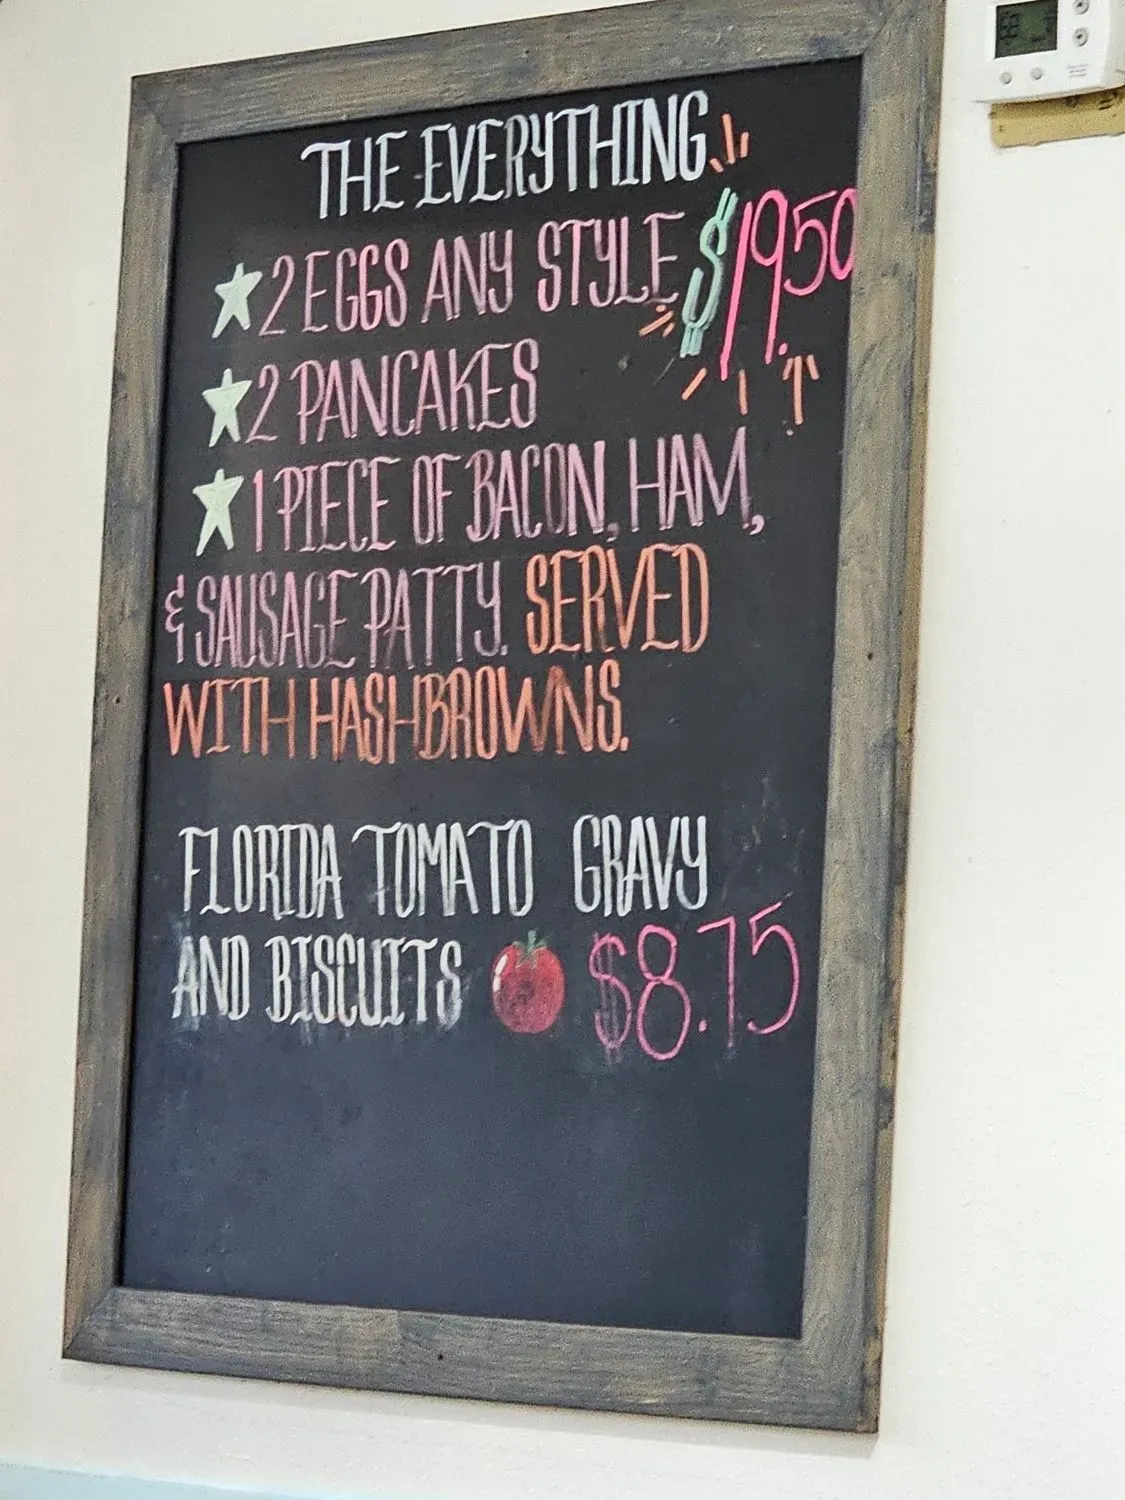 THE EVERYTHING
2 EGGS ANY STYLE $19.50
2 PANCAKES
1 PIECE OF BACON, HAM,
& SAUSAGE PATTY. SERVED
WITH HASHBROWNS.
FLORIDA TOMATO GRAVY
AND BISCUITS $8.75